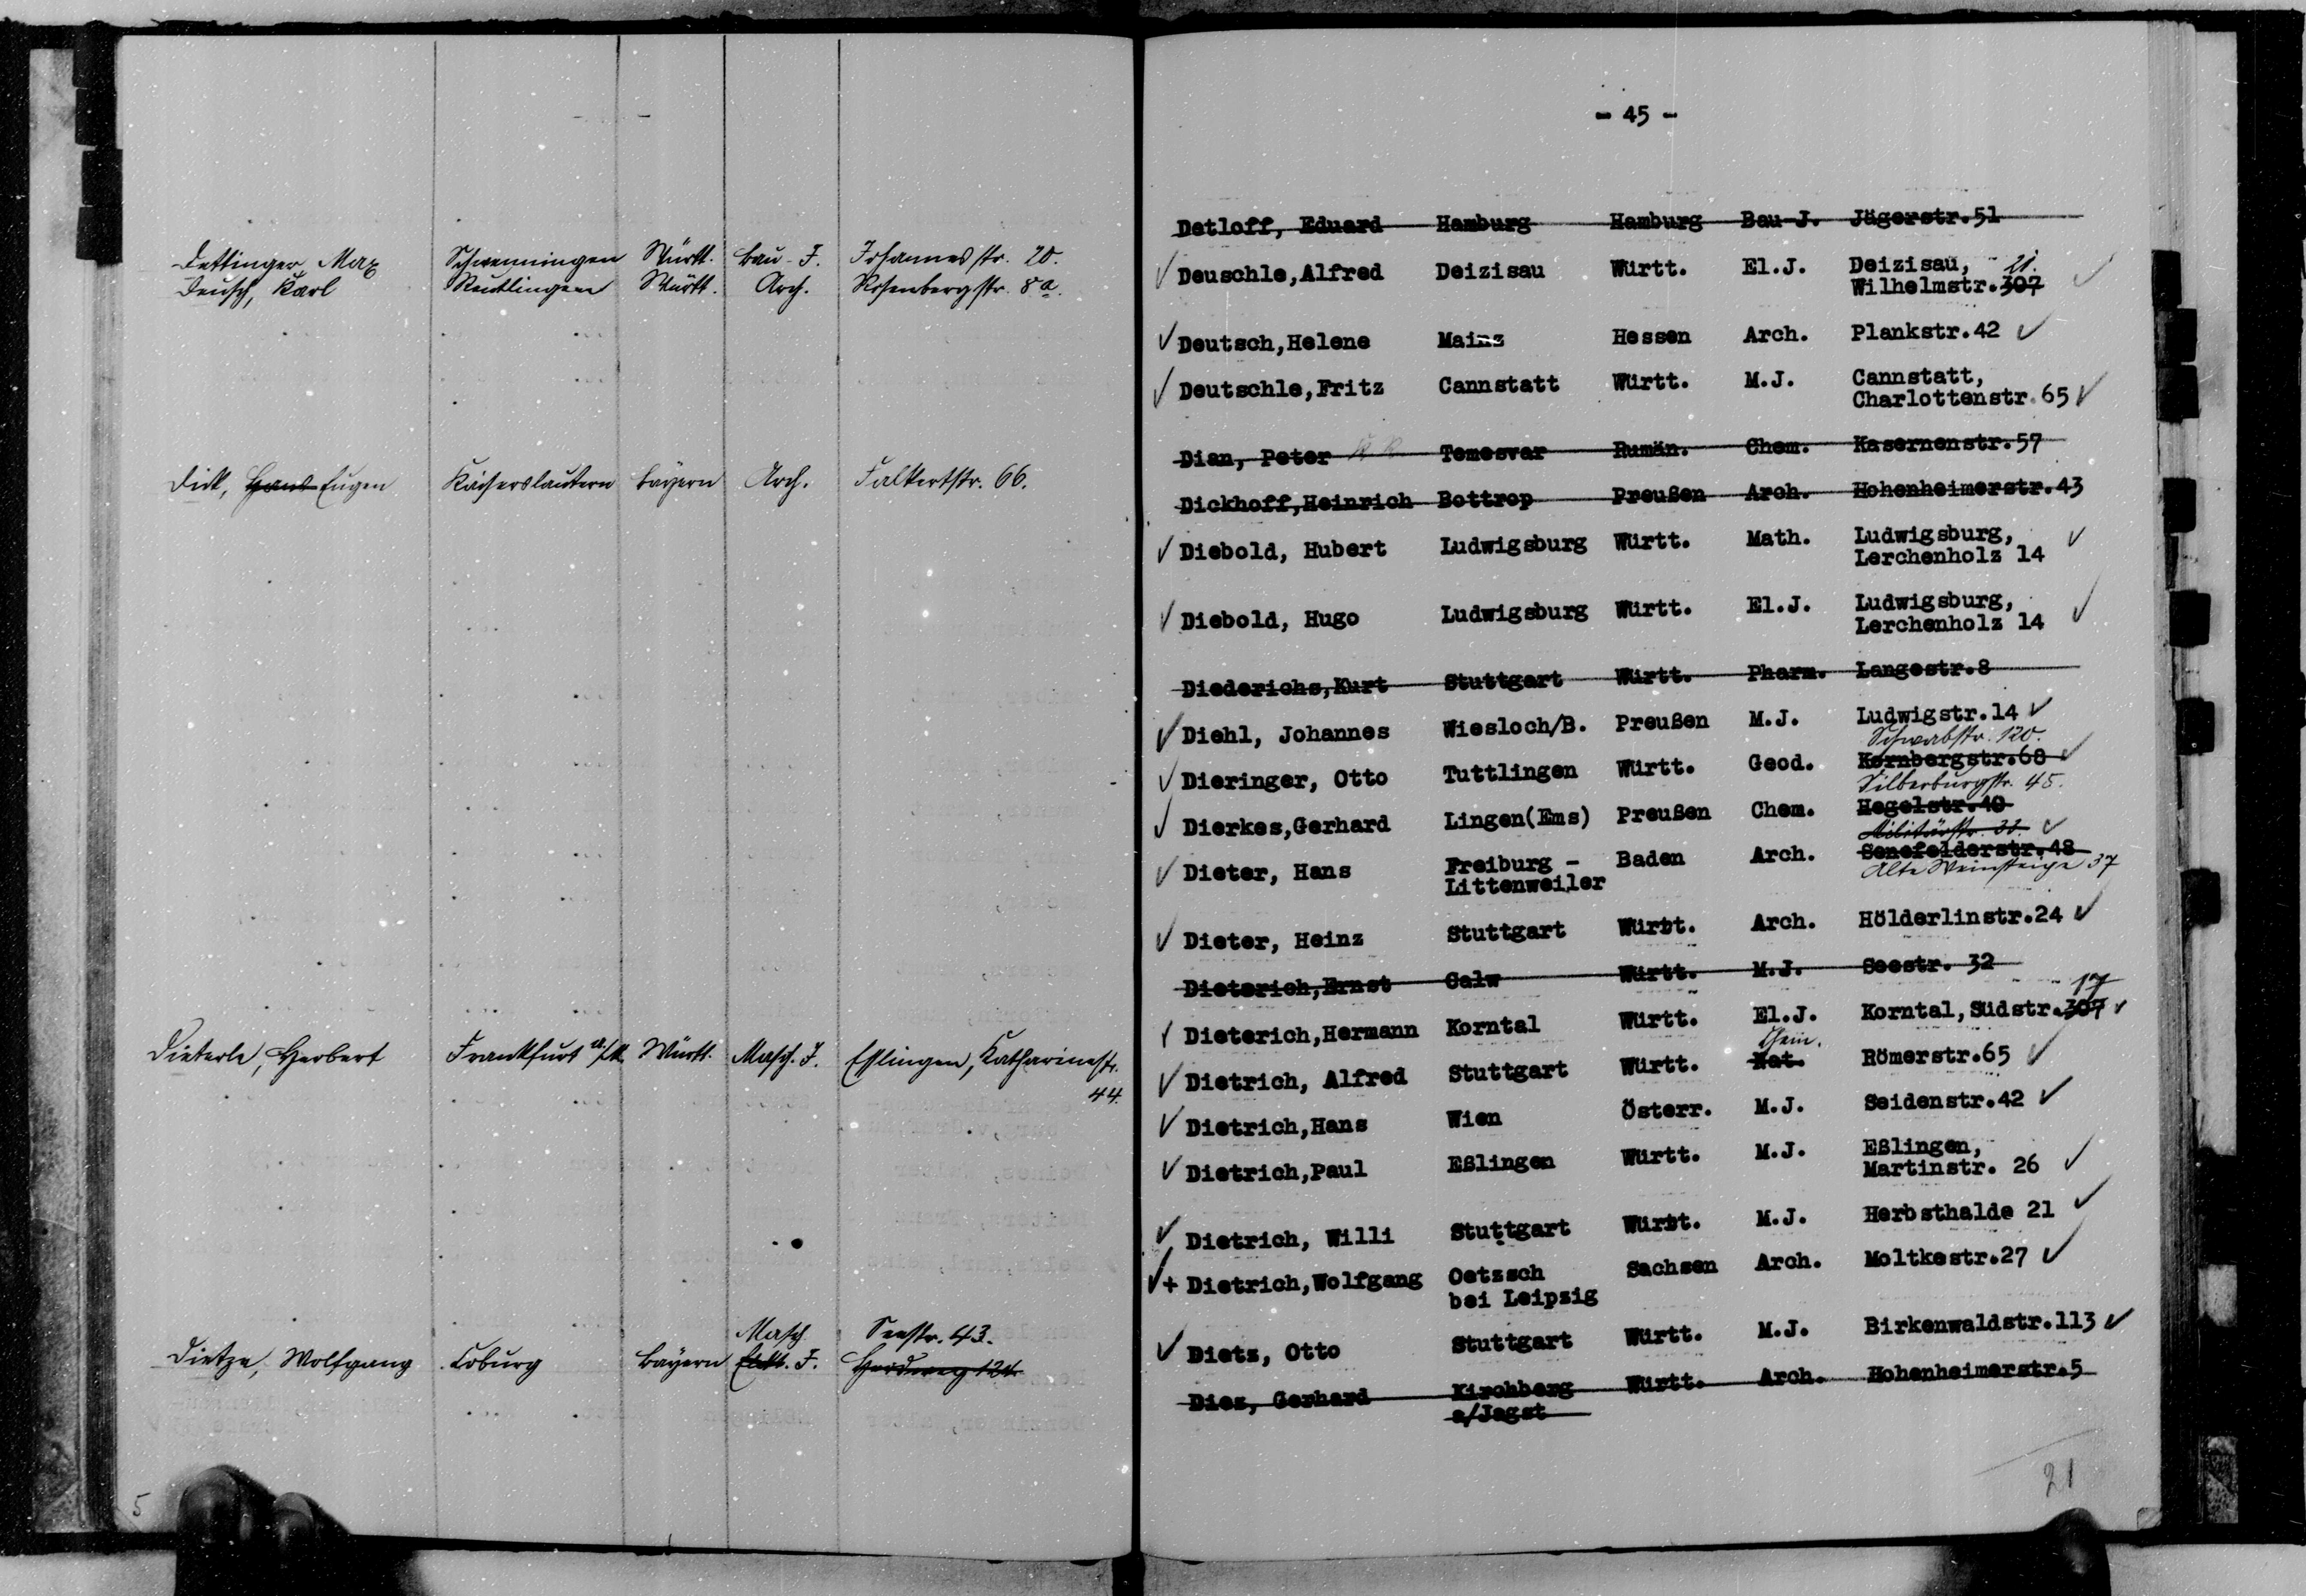 Dettinger Max Schwenningen Württ. Bau-I. Johannesstr. 20.
Deusch, Karl Reutlingen Württ. Arch. Rosenbergstr. 8a.
Dick, Hans Eugen Kaiserslautern Bayern Arch. Falkertstr. 66.
Dieterle, Herbert Frankfurt a/M. Württ. Masch. I. Eßlingen, Katharinestr.
44.
Masch. Seestr. 43.
Dietze, Wolfgang Coburg Bayern Elekt. I. Herdweg 124
5
- 45 -
Detloff, Eduard Hamburg Hamburg Bau-J. Jägerstr.51
Deuschle,Alfred Deizisau Württ. El.J. Deizisau, 21.
Wilhelmstr.307
Deutsch,Helene Mainz Hessen Arch. Plankstr.42
Deutschle,Fritz Cannstatt Württ. M.J. Cannstatt,
Charlottenstr.65
Dian, Peter Temesvar Rumän. Chem. Kasernenstr.57
Dickhoff,Heinrich Bottrop Preußen Arch. Hohenheimerstr.43
Diebold, Hubert Ludwigsburg Württ. Math. Ludwigsburg,
Lerchenholz 14
Diebold, Hugo Ludwigsburg Württ. El.J. Ludwigsburg,
Lerchenholz 14
Diederichs,Kurt Stuttgart Württ. Pharm. Langestr.8
Diehl, Johannes Wiesloch/B. Preußen M.J. Ludwigstr.14
Schwabstr. 120.
Dieringer, Otto Tuttlingen Württ. Geod. Kornbergstr.68
Silberburgstr. 45.
Dierkes,Gerhard Lingen(Ems) Preußen Chem. Hegelstr.40
Militärstr. 33.
Dieter, Hans Freiburg - Baden Arch. Senefelderstr.48
Littenweiler Alte Weinsteige 37
Dieter, Heinz Stuttgart Württ. Arch. Hölderlinstr.24
Dieterich,Ernst Calw Württ. M.J. Seestr. 32
17
Dieterich,Hermann Korntal Württ. El.J. Korntal,Südstr.307
Chem.
Dietrich, Alfred Stuttgart Württ. Nat. Römerstr.65
Dietrich,Hans Wien Österr. M.J. Seidenstr.42
Dietrich,Paul Eßlingen Württ. M.J. Eßlingen,
Martinstr. 26
Dietrich, Willi Stuttgart Württ. M.J. Herbsthalde 21
+ Dietrich,Wolfgang Oetzsch Sachsen Arch. Moltkestr.27
bei Leipzig
Dietz, Otto Stuttgart Württ. M.J. Birkenwaldstr.113
Diez, Gerhard Kirchberg Württ. Arch. Hohenheimerstr.5
a/Jagst
21